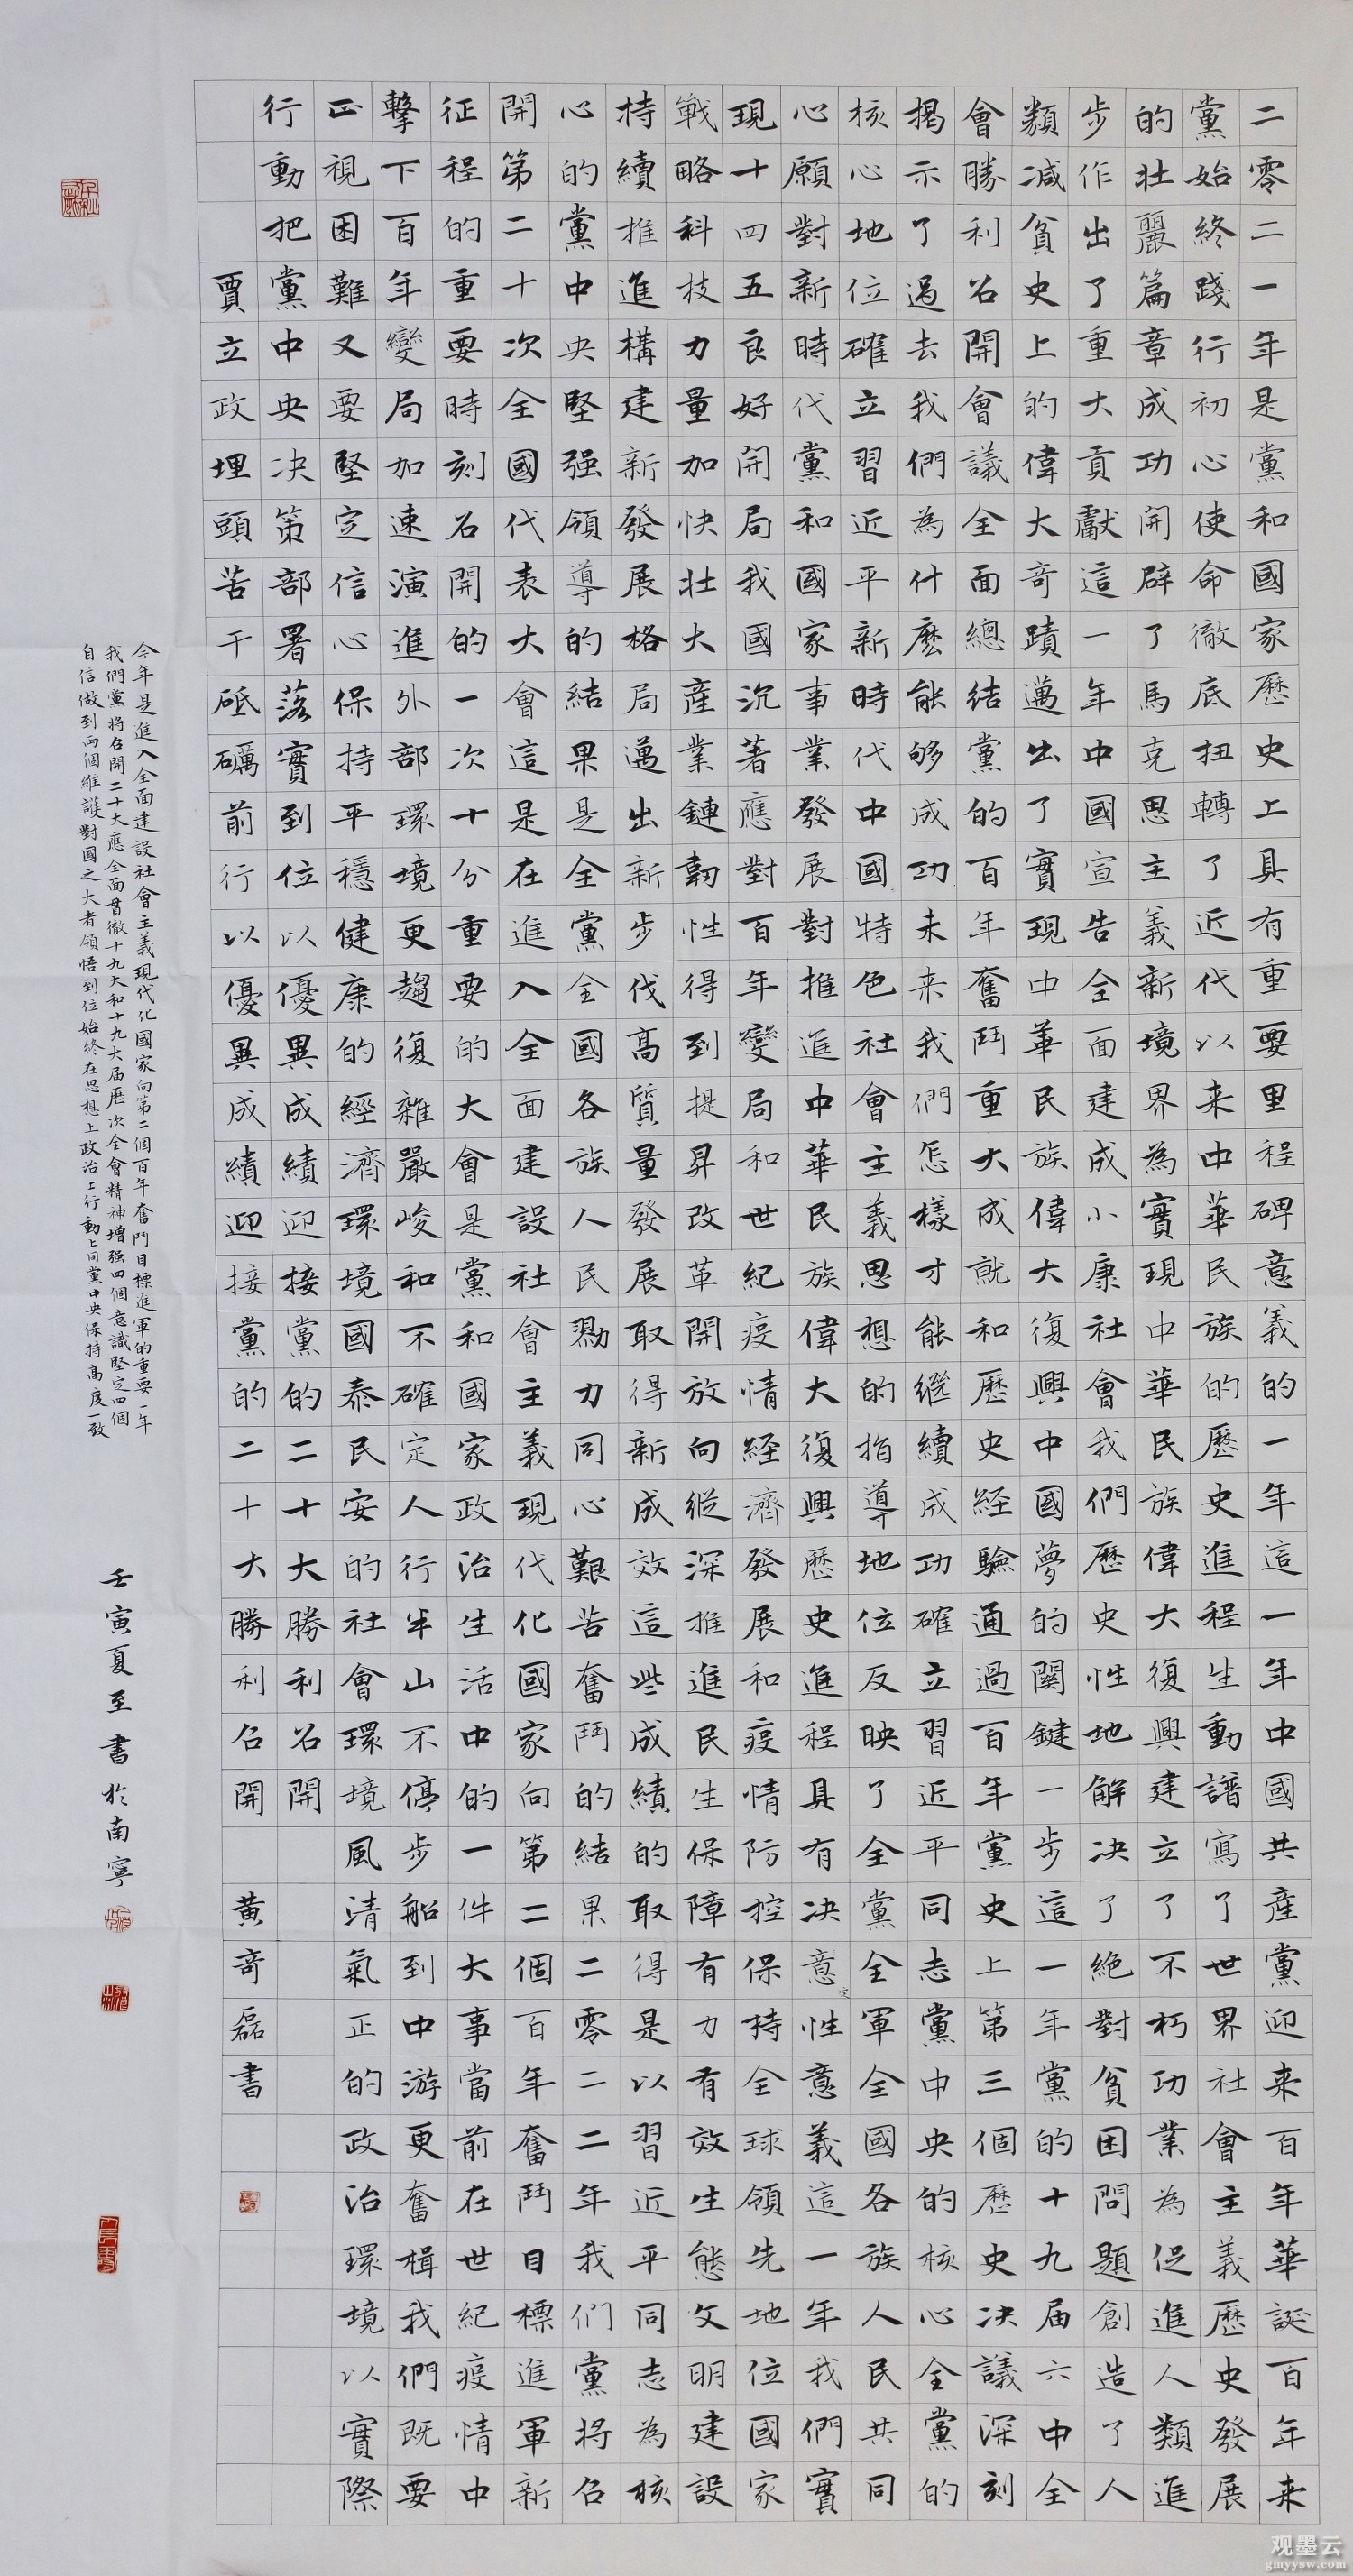 二零二一年是黨和國家歷史上具有重要里程碑意義的一年這一年中國共產黨迎来百年華誕百年来
黨始終踐行初心使命徹底扭轉了近代以来中華民族的歷史進程生動譜寫了世界社會主義歷史發展
的壮麗篇章成功開辟了馬克思主義新境界為實現中華民族偉大復興建立了不朽功業為促進人類進
步作出了重大貢獻這一年中國宣告全面建成小康社會我們歷史性地解决了絶對貧困問題創造了人
類减貧史上的偉大奇蹟邁出了實現中華民族偉大復興中國夢的關鍵一步這一年黨的十九届六中全
會勝利召開會議全面總結黨的百年奮鬥重大成就和歷史經驗通過百年黨史上第三個歷史决議深刻
揭示了過去我們為什麽能够成功未来我們怎樣才能继續成功確立習近平同志黨中央的核心全黨的
核心地位確立習近平新時代中國特色社會主義思想的指導地位反映了全黨全軍全國各族人民共同
心願對新時代黨和國家事業發展對推進中華民族偉大復興歷史進程具有决意定性意義這一年我們實
現十四五良好開局我國沉著應對百年變局和世紀疫情経濟發展和疫情防控保持全球領先地位國家
戰略科技力量加快壮大産業鏈韌性得到提昇改革開放向縱深推進民生保障有力有效生態文明建設
持續推進構建新發展格局邁出新步伐高質量發展取得新成效這些成績的取得是以習近平同志為核
心的黨中央堅强領導的結果是全黨全國各族人民勠力同心艱苦奮鬥的結果二零二二年我们黨將召
開第二十次全國代表大會這是在進入全面建設社會主義現代化國家向第二個百年奮鬥目標進軍新
征程的重要時刻召開的一次十分重要的大會是黨和國家政治生活中的一件大事當前在世紀疫情中
擊下百年變局加速演進外部環境更趨復雜嚴峻和不確定人行半山不停步船到中游更奮楫我們既要
正視困難又要堅定信心保持平穩健康的經濟環境國泰民安的社會環境風清氣正的政治環境以實際
行動把黨中央决策部署落實到位以優異成績迎接黨的二十大勝利召開
賈立政埋頭苦干砥礪前行以優異成績迎接黨的二十大勝利召開 黄奇磊書
今年是進入全面建設社會主義現代化國家向第二個百年奮鬥目標進軍的重要一年
我們黨將召開二十大應全面貫徹十九大和十九大届歷次全會精神增强四個意識堅定四個
自信做到兩個維護對國之大者領悟到位始終在思想上政治上行動上同黨中央保持高度一致
壬寅夏至書於南寧
观墨云
gmyysw.com